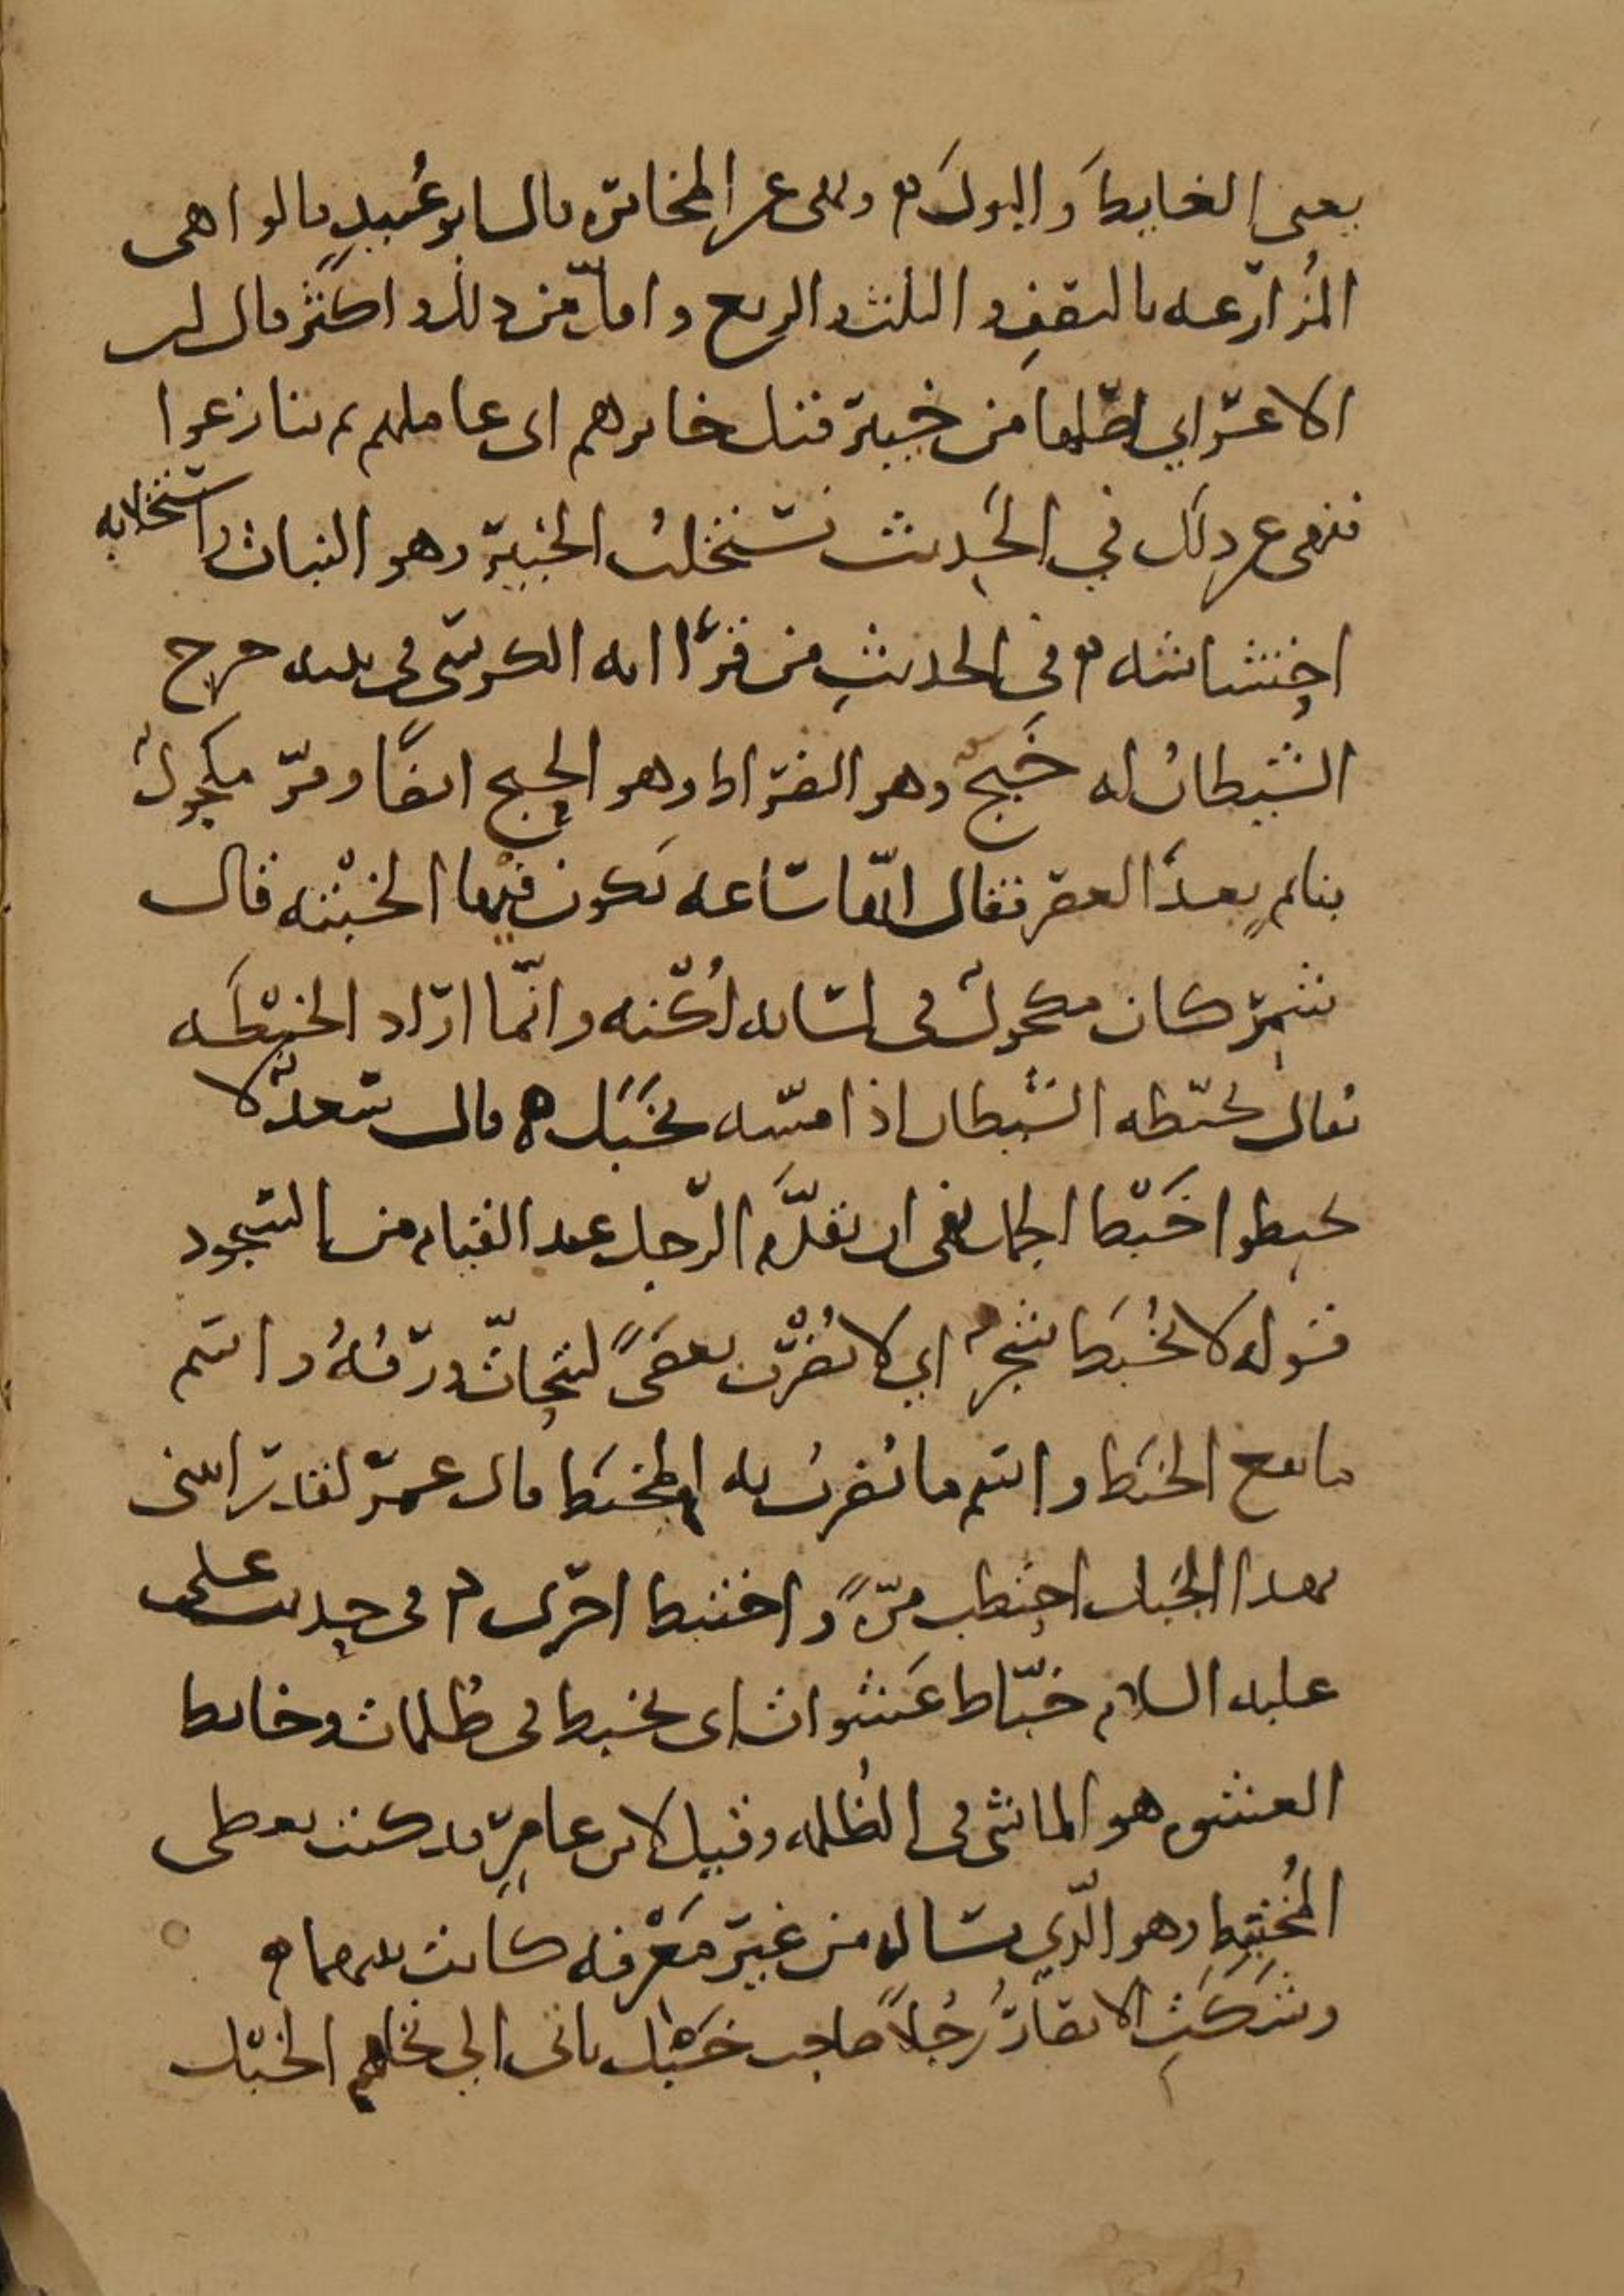 يعني الغايط والبول ونهى عن المخابره قال ابو عبيد قالوا هي
المزارعه بالنصف والثلث والربع واقل من ذلك واكثر قال ابن
الاعرابي اصلها من خيبر فقيل خابرهم اى عاملهم ثم تنازعوا
فنهى عن ذلك في الحديث نستخلب الخبير وهو النبات واستخلابه
احتشاشه في الحديث من قرا ايه الكرسي في بيته خرج
الشيطان له خبج وهو الضراط وهو الحبج ايضًا ومر مكحول
بنايم بعد العصر فقال انها ساعه تكون فيها الخبته قال
شمر كان مكحول في لسانه لكنه وانما اراد الخبطه
يقال تخبطه الشيطان اذا مسه بخبل قال سعد لا
تخبطوا خبط الجمل نهى ان يقدم الرجل عند القيام من السجود
قوله لا يخبط شجر اي لا يضرب بعصى ليتحات ورقه واسم
ما يقع الخبط واسم ما يضرب به المخبط قال عمر لقد رايتني
بهذا الجبل احتطب مرة واختبط اخرى في حديث على
عليه السلام خباط عشوات اى يخبط في ظلمات وخابط
العشوه هو الماشي في الظلمه وقيل لابن عامر قد كنت تعطى
المختبط وهو الذي يساله من غير معرفه كانت بينهما
وشكت الانصار رجلا صاحب خبل ياتى الى نخلهم الخبل